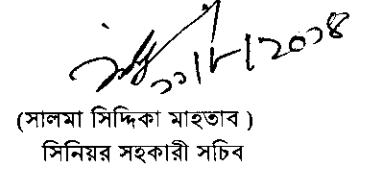 ১১/৮/২০১৪
(সালমা সিদ্দিকা মাহতাব )
সিনিয়র সহকারী সচিব